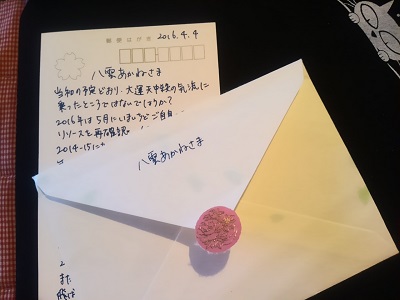 郵便はがき
2016.4.4
八雲あかねさま
当初の予定どおり、大運天中殺の気流に
乗ったところではないでしょうか?
2016年は5月にいましろどご自
リソースを再確認。
2014-15に
八雲あかねさま
また